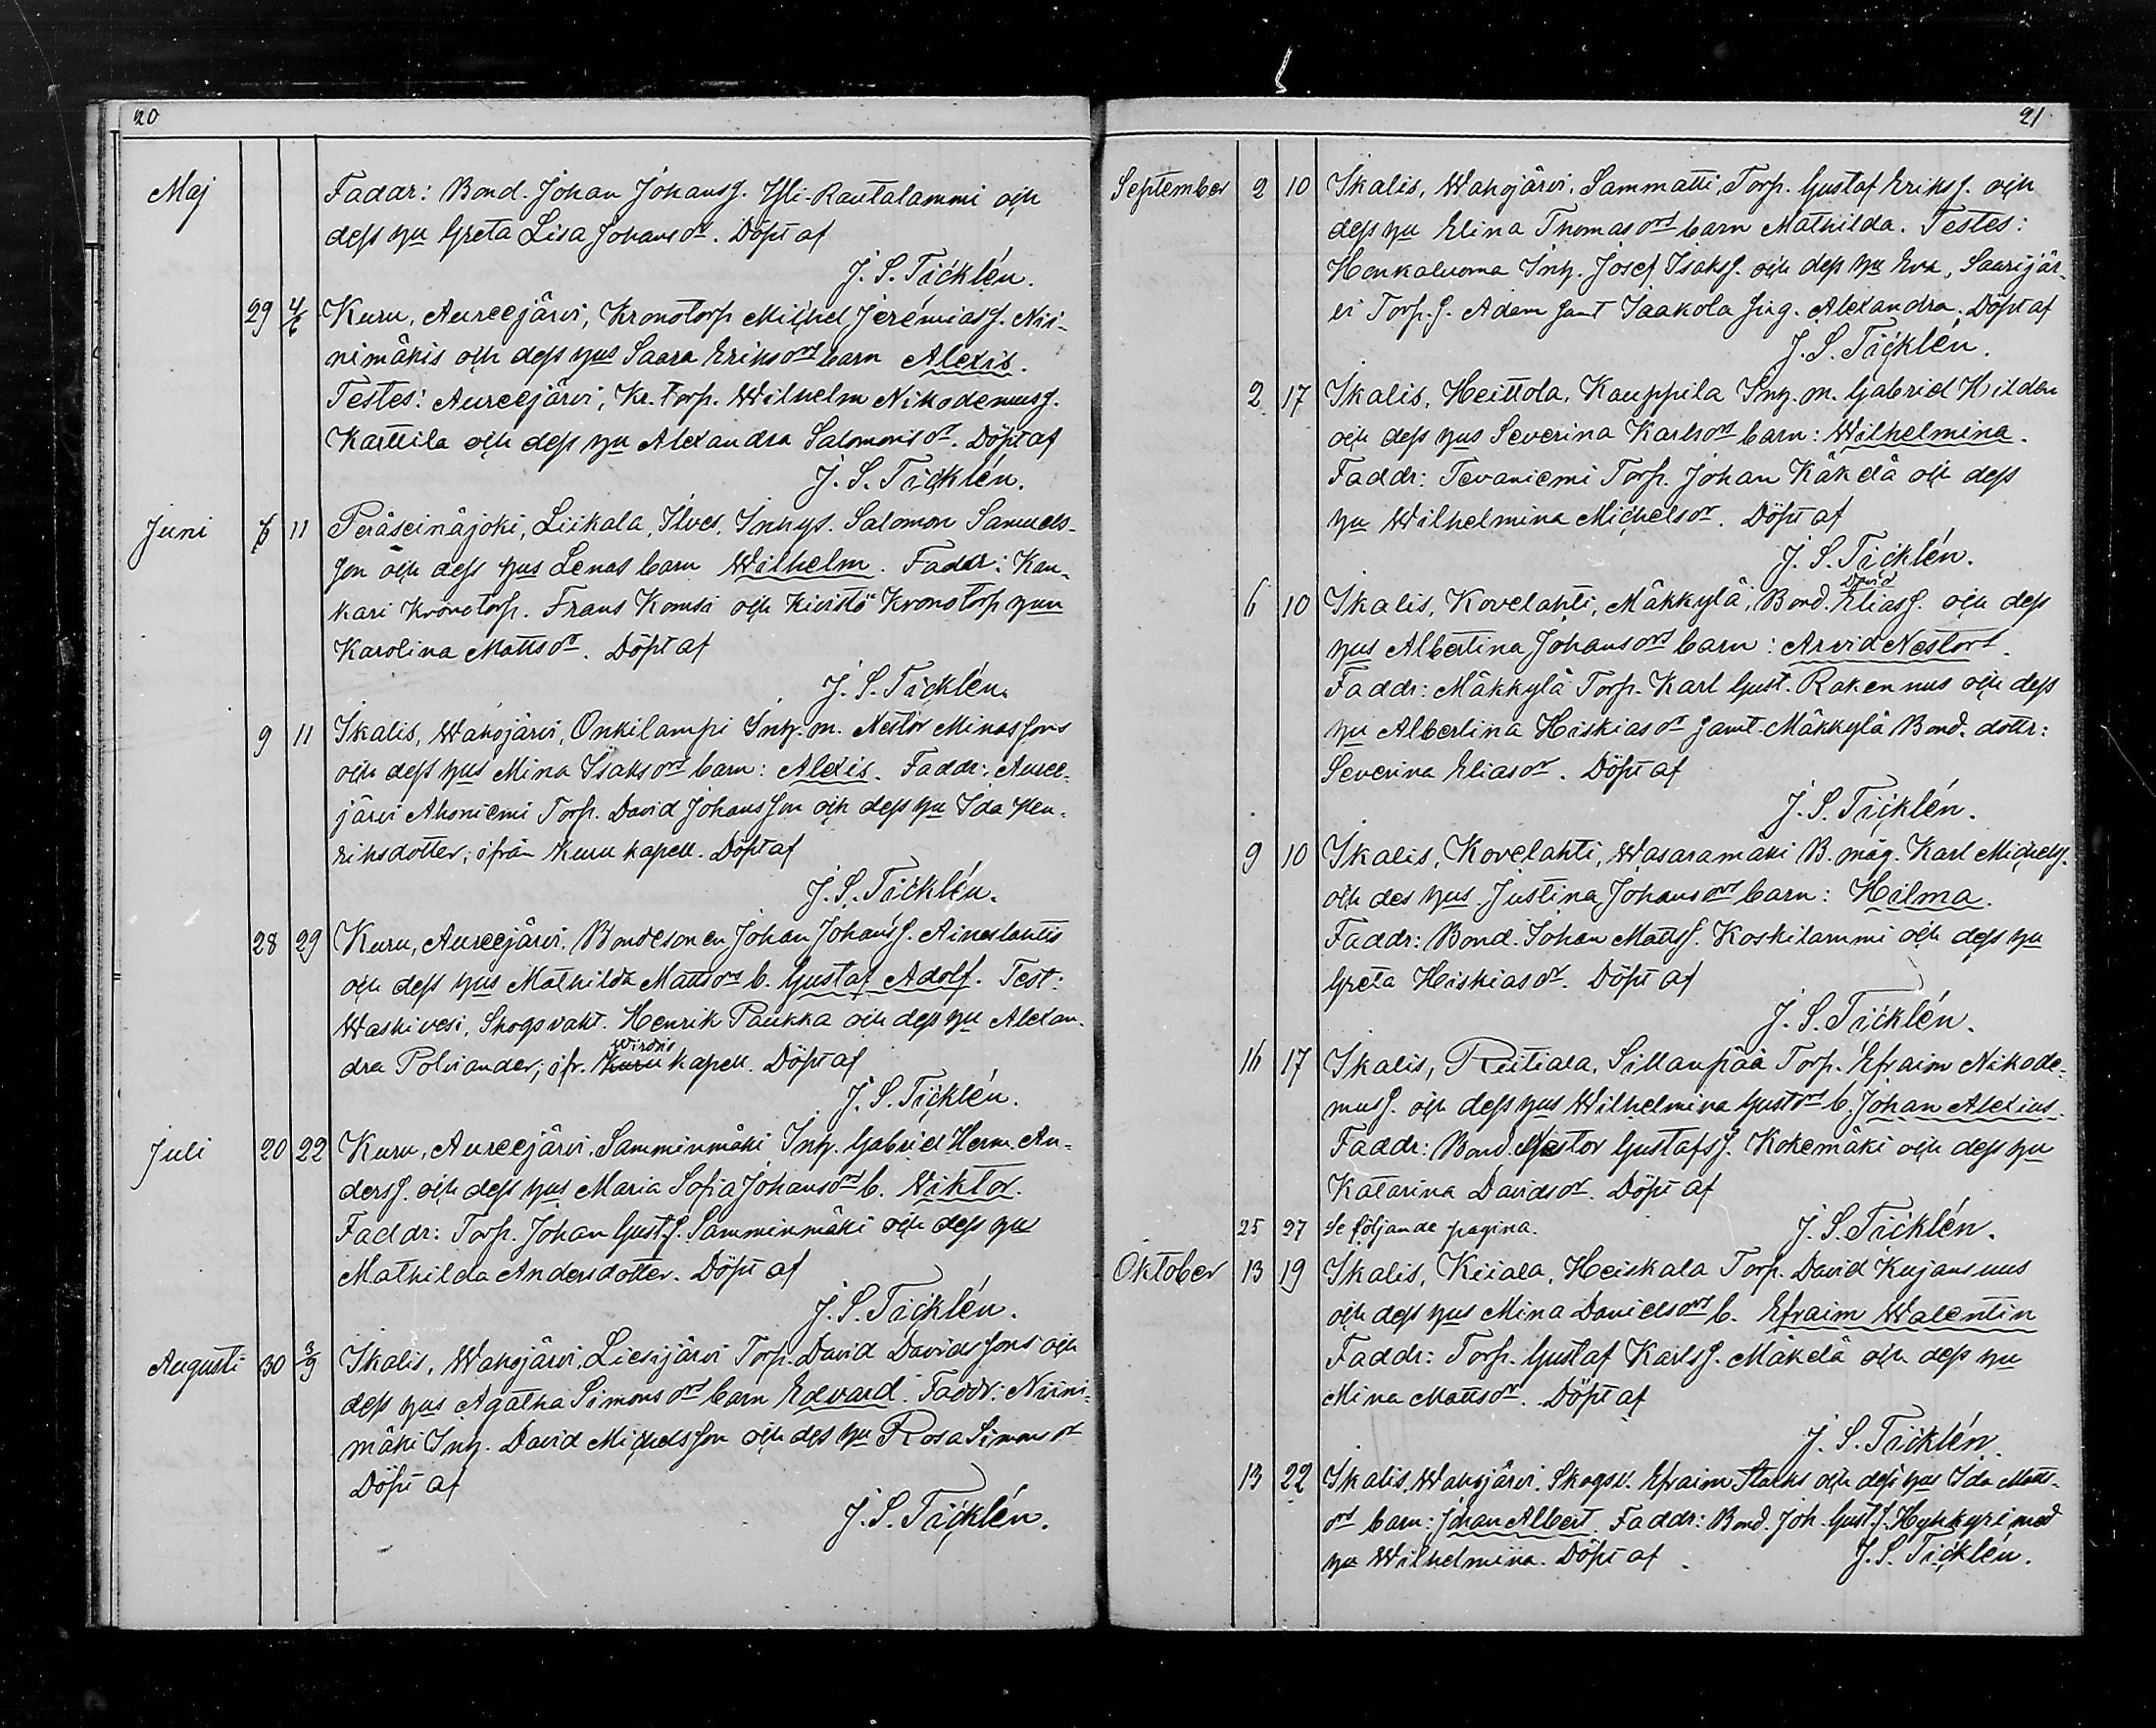 20
Maj
Faddr: Bond. Johan Johanss. Yli-Rautalammi och
dess hu Greta Lisa Johansdr. Döpt af
J. S. Ticklén.
29 4/6 Kuru, Aureejärvi, Kronotorp Michel Jeremiass. Nii-
nimäkis och dess hus Saara Eriksdrs barn Alexis.
Testes: Aureejärvi, Kr. torp. Wilhelm Nikodemuss.
Karttila och dess hu Alexandra Salomonsdr. Döpt af
J. S. Ticklén.
Juni 6 11 Peräseinäjoki, Liikala, Ilves, Inhys. Salomon Samuels-
son och dess hus Lenas barn Wilhelm. Faddr: Kan-
kari Kronotorp. Frans Komsi och Kivistö Kronotorp hun
Karolina Mattsdr. Döpt af
J. S. Ticklén.
9 11 Ikalis, Wahojärvi, Onkilampi Inh. m. Nestor Minassons
och dess hus Mina Isaksdrs barn: Alexis. Faddr: Auree-
järvi Ahoniemi Torp. David Johansson och dess hu Ida Hen-
riksdotter, ifrån Kuru kapell. Döpt af
J. S. Ticklén.
28 29 Kuru, Aureejärvi. Bondesonen Johan Johanss. Aineslahtis
och dess hus Mathilda Mattsdrs b. Gustaf Adolf. Test:
Waskivesi, Skogsvakt. Henrik Paukka och dess hu Alexan-
dra Polviander, ifr. Kuru Wirdois kapell. Döpt af
J. S. Ticklén.
Juli 20 22 Kuru, Aureejärvi, Samminmäki Inh. Gabriel Herm. An-
derss. och dess hus Maria Sofia Johansdrs b. Wiktor.
Faddr: Torp. Johan Gust.s. Samminmäki och dess hu
Mathilda Andersdotter. Döpt af
J. S. Ticklén.
Augusti 30 3/9 Ikalis, Wahojärvi, Liesijärvi Torp. David Davidssons och
dess hus Agatha Simonsdrs barn Edvard. Faddr: Niini-
mäki Inh. David Michelsson och des hu Rosa Simonsdr
Döpt af
J. S. Ticklén.
21
September 2 10 Ikalis, Wahojärvi, Sammatti, Torp. Gustaf Erikss. och
dess hu Elina Thomasdrs barn Mathilda. Testes:
Honkaluoma Inh. Josef Isakss. och dess hu Eva, Saarijär-
vi Torp. s. Adam samt Jaakola pig. Alexandra. Döpt af
J. S. Ticklén.
2 17 Ikalis, Heittola, Kauppila Inh. m. Gabriel Hilden
och dess hus Severina Karlsdrs barn: Wilhelmina.
Faddr: Tevaniemi Torp. Johan Käkelä och dess
hu Wilhelmina Michelsdr. Döpt af
J. S. Ticklén.
6 10 Ikalis, Kovelahti, Mäkkylä, Bond. David Eliass. och dess
hus Albertina Johansdrs barn: Arvid Nestor.
Faddr: Mäkkylä Torp. Karl Gust. Rakennus och dess
hu Albertina Hiskiasdr samt Mäkkylä Bond. dottr:
Severina Eliasdr. Döpt af
J. S. Ticklén.
9 10 Ikalis, Kovelahti, Wasaramäki B. måg. Karl Michelss.
och des hus Justina Johansdrs barn: Hilma.
Faddr: Bond. Johan Mattss. Koskilammi och dess hu
Greta Hiskiasdr. Döpt af
J. S. Ticklén.
16 17 Ikalis, Riitiala, Sillanpää Torp. Efraim Nikode-
muss. och dess hus Wilhelmina Gustdrs b. Johan Alexius.
Faddr: Bond. Nestor Gustafss. Kokemäki och dess hu
Katarina Davidsdr. Döpt af
25 27 Se följande pagina. J. S. Ticklén.
Oktober 13 19 Ikalis, Kiiala, Heiskala Torp. David Kujansuus
och dess hus Mina Davidsdrs b. Efraim Walentin
Faddr: Torp. Gustaf Karlss. Mäkelä och dess hu
Mina Mattsdr. Döpt af
J. S. Ticklén.
13 22 Ikalis, Wahojärvi, Skogsv. Efraim Starks och dess hus Ida Matts-
drs barn: Johan Albert. Faddr: Bond. Joh. Gust.s. Hyhkyri med
hu Wilhelmina. Döpt af J. S. Ticklén.